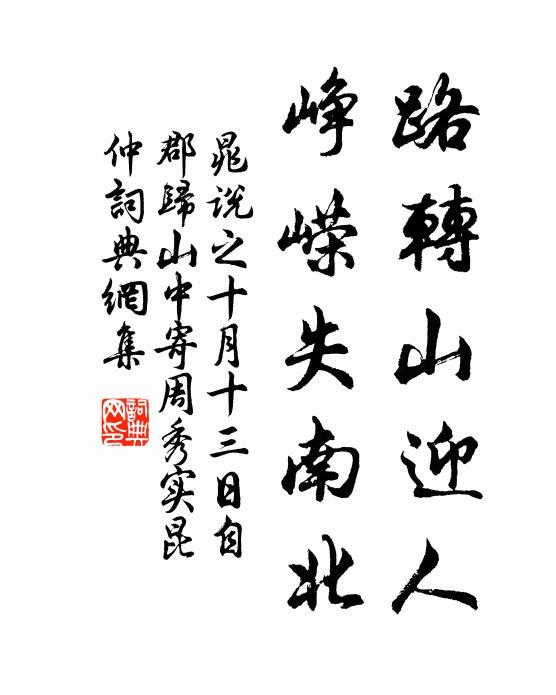 路轉山迎人
峥嶸失南北
晁说之十月十三日自
郡歸山中寄周秀实昆
仲詞典網集
詞典
网印